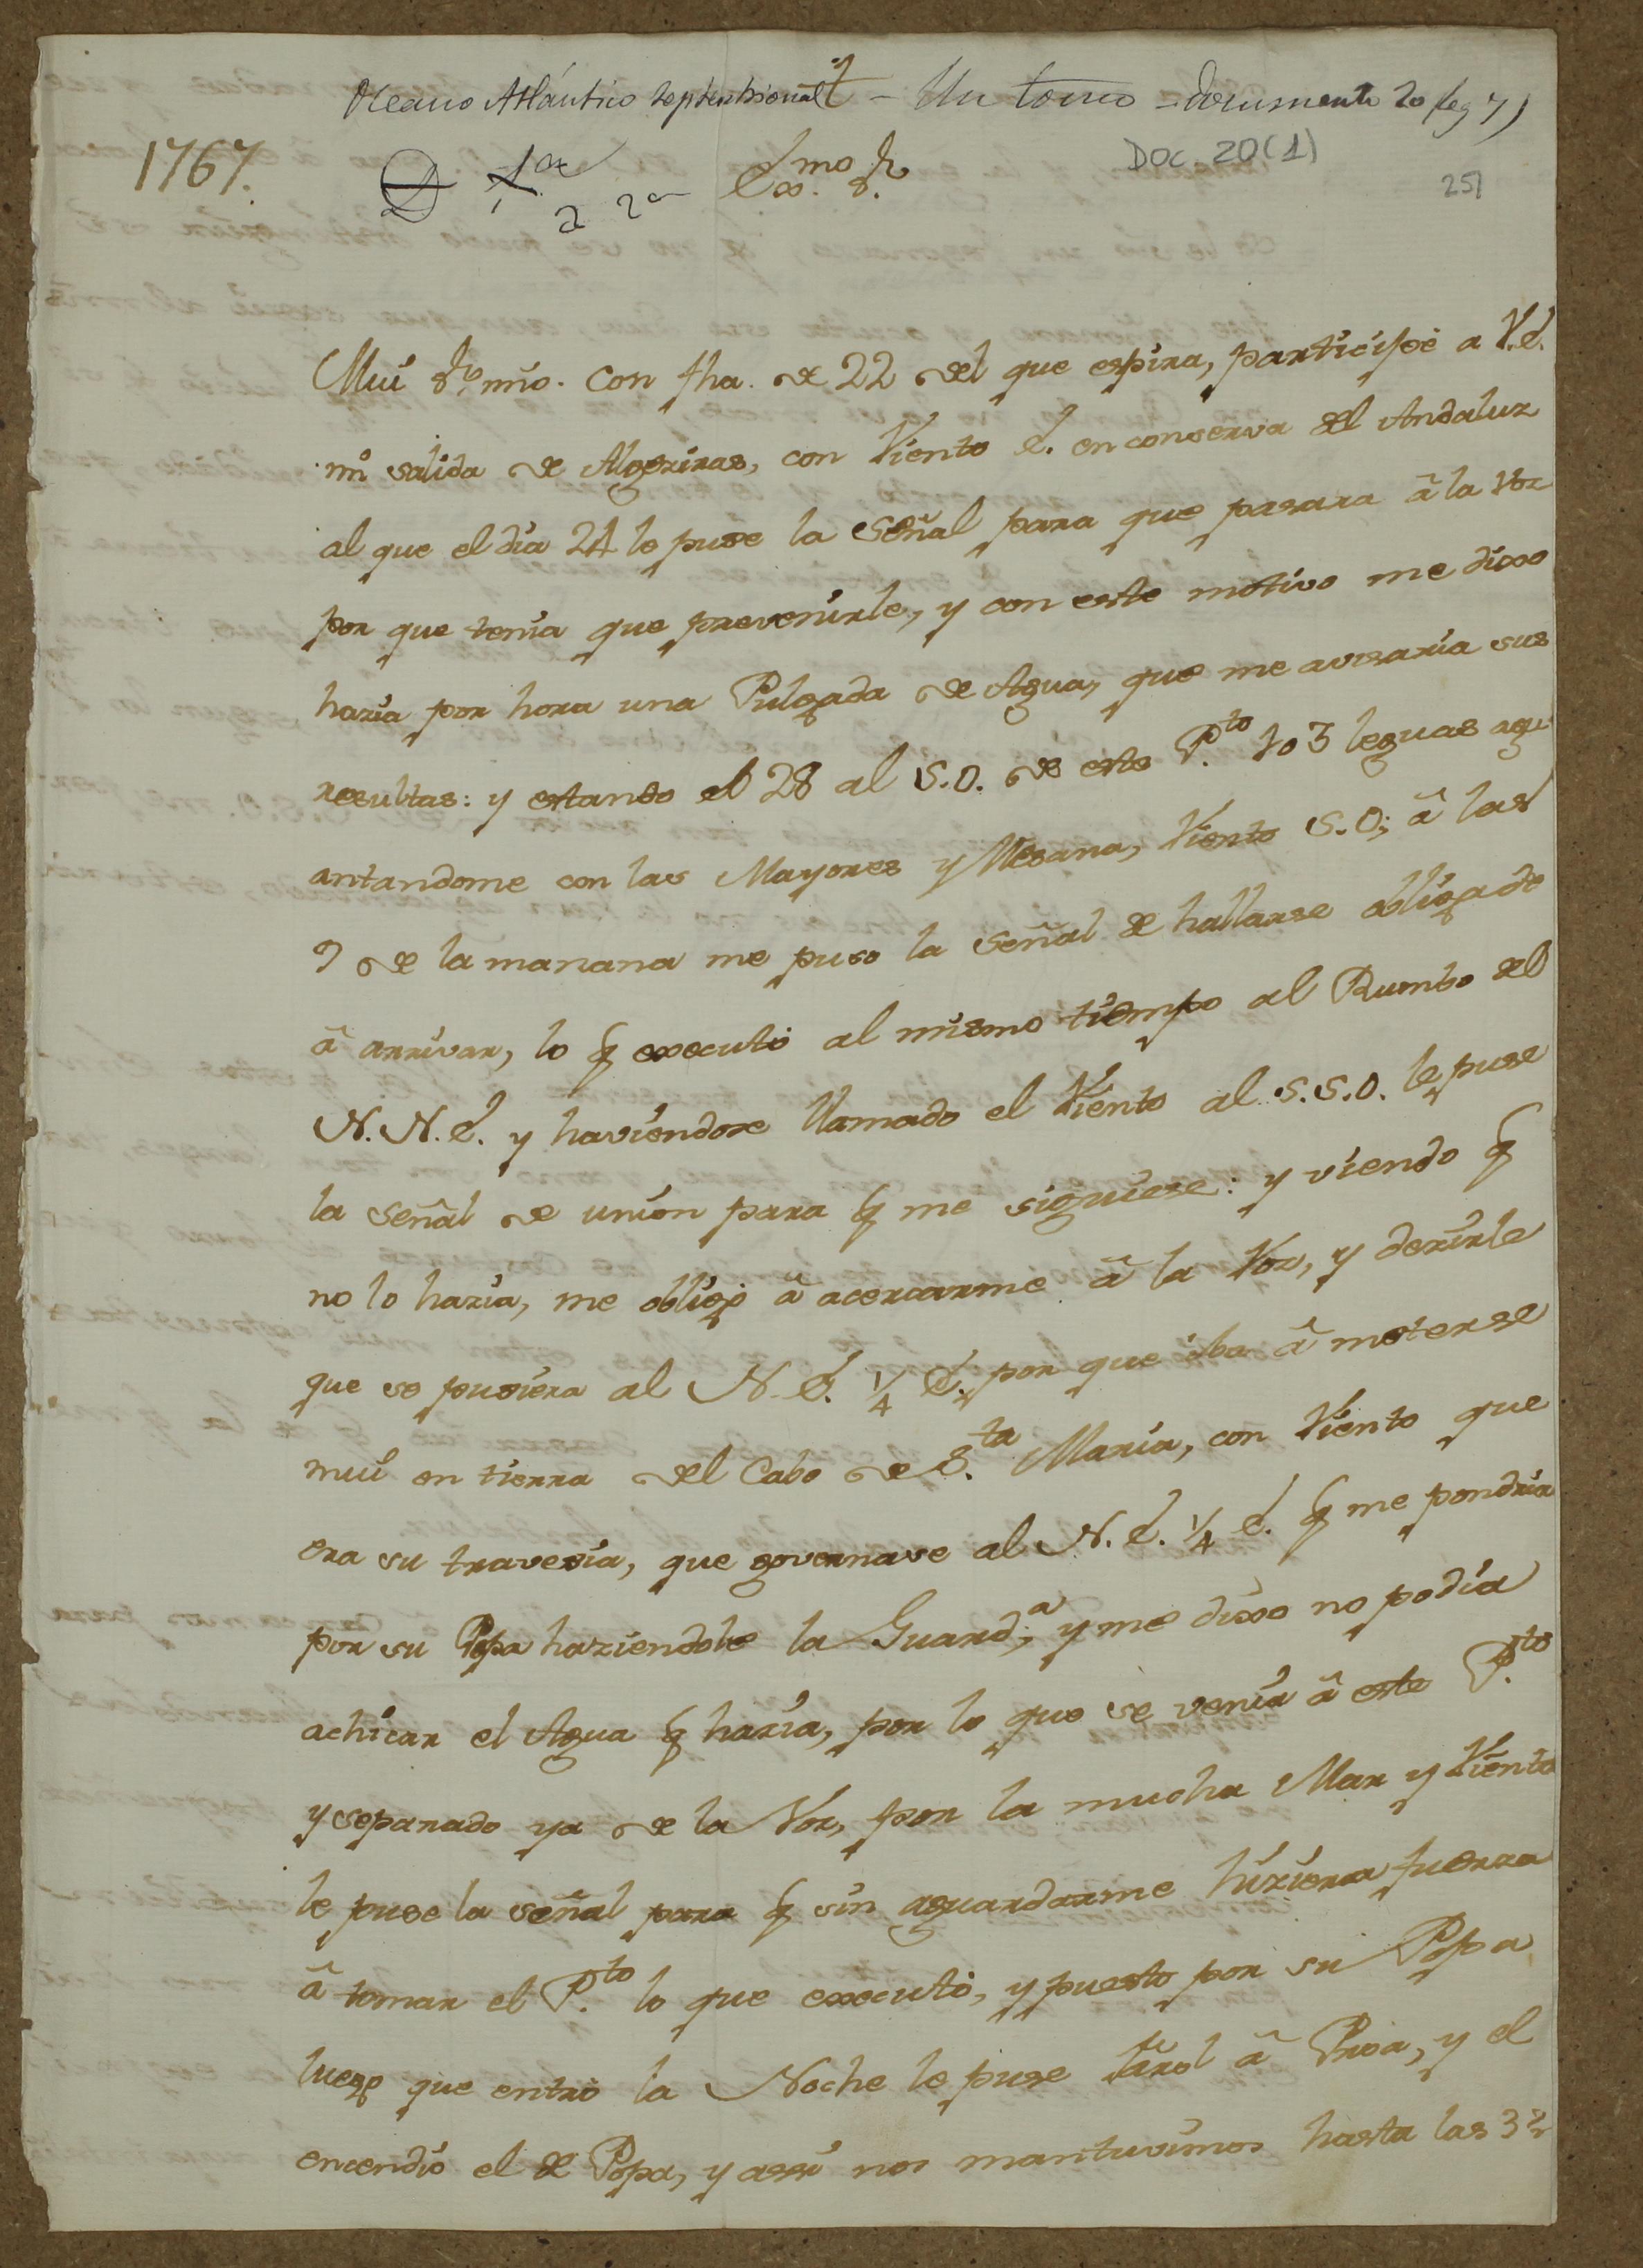 Oceano Atlántico septentrional t - Un tomo - documento 20 leg 7)
DOC. 20(1)
1767.
Exmo. Sr.
251
a 2a
Mui Sr. mio. Con fha. de 22 del que espira, participé a V.E.
mi salida de Algeziras, con Viento E. en conserva del Andaluz
al que el dia 24 le puse la Señal para que pasara â la Voz
por que tenia que prevenirle, y con este motivo me dixo
hazia por hora una Pulgada de Agua, que me avisaria sus
resultas: y estando el 28 al S.O. de este P.to 3 leguas agu
antandome con las Mayores y Mesana, Viento S.O; â las
9 de la manana me puso la Señal de hallarse obligado
â arrivar, lo q executó al mismo tiempo al Rumbo del
N.N.E. y haviendose llamado el Viento al S.S.O. le puse
la Señal de union para q me siguiese: y viendo q
no lo hazia, me obligó â acercarme â la Voz, y dezirle
que se pusiera al N.E. 1/4 E. por que iba â meterse
mui en tierra del Cabo de S.ta Maria, con Viento que
era su travesia, que governase al N.E. 1/4 E. q me pondria
por su Popa haziendole la Guard.a y me dixo no podia
achicar el Agua q hazia, por lo que se venia â este P.to
y separado ya de la Voz, por la mucha Mar y Viento
le puse la señal para q sin aguardarme hiziera fuerza
â tomar el P.to lo que executó, y puesto por su Popa
luego que entró la Noche le puse farol â Proa, y el
encendió el de Popa, y assi nos mantuvimos hasta las 3